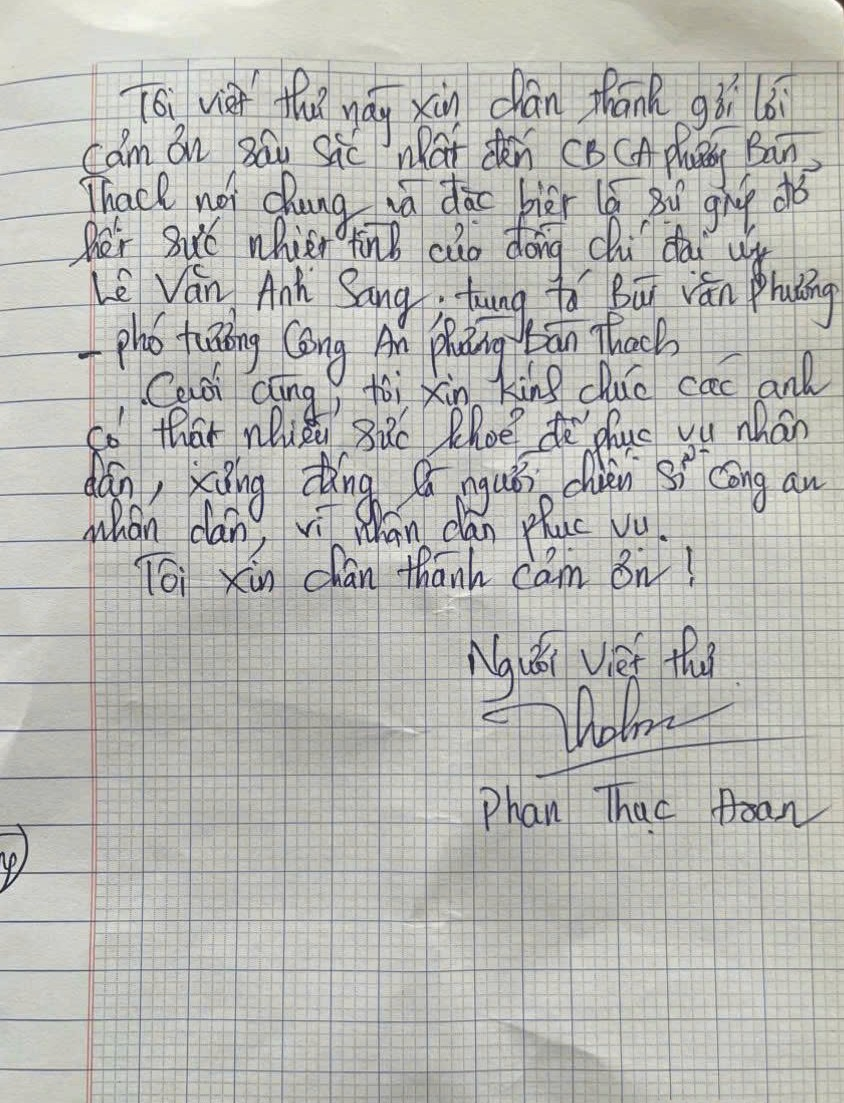 Tôi viết thư này xin chân thành gởi lời
cảm ơn sâu sắc nhất đến CBCA phường Bàn
Thạch nói chung và đặc biệt là sự giúp đỡ
hết sức nhiệt tình của đồng chí đại úy
Lê Văn Anh Sang, trung tá Bùi Văn Phường
- phó trưởng Công An phường Bàn Thạch
Cuối cùng, tôi xin kính chúc các anh
có thật nhiều sức khoẻ để phục vụ nhân
dân, xứng đáng là người chiến sĩ công an
nhân dân, vì nhân dân phục vụ.
Tôi xin chân thành cảm ơn!
Người viết thư
Phan Thục Đoan